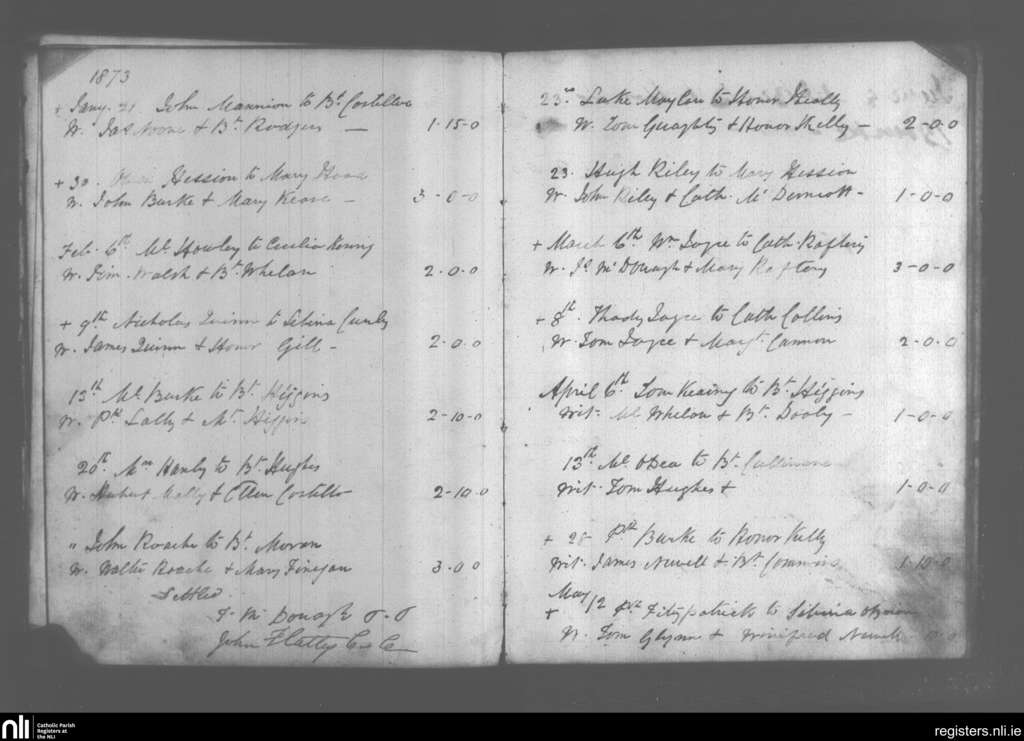 1873
+ Jany. 21. John Mannion to Bt. Costelloe
W. Jas Noone & Bt. Rodgers — 1-15-0
+ 30. Hession to Mary
W. John Burke & Mary Keane — 3-0-0
Feb. 6th Ml. Howley to Cecilia
W. Walsh & Bt. Whelan 2.0.0
+ 9th Nicholas Quinn to Sibina Cunly
W. James Quinn & Honor Gill — 2.0.0
13th Ml. Burke to Bt. Higgins
W. Ptk Lally & Mt. Higgins 2-10-0
20th. Hanly to Bt. Hughes
W. Hubert Mally & Ellen Costello 2-10-0
" John Roache to Bt. Moran
W. Walter Roache & Mary Finegan 3.0.0
Settled.
Mc Donagh
John Flattery C. C.
23rd Luke Moylan to Honor Healy
W. Tom Geraghty & Honor Skelly — 2-0-0
23. Hugh Riley to Mary Hession
W. John Riley & Cath. Mc Dermott - 1-0-0
+ March 6th Wm Joyce to Cath Raftery
W. Mc Donagh & Mary Raftery 3-0-0
+ 8th. Thady Joyce to Cath Collins
W. Tom Joyce & Margt. Cannon 2-0-0
April 6th Tom Keaing to Bt. Higgins
Wit. Ml Whelan & Bt. Dooly — 1-0-0
13th Ml. ODea to Bt. Cullinane
Wit. Tom Hughes & 1-0-0
+ 28 Ptk Burke to Honor Kelly
Wit. James Newell & Bt. Commins 1-10-0
May
+ 12 Ptk Fitzpatrick to Sibina
W. Tom Glynn & Winifred Newell
nli
Catholic Parish
Registers at
the NLI
registers.nli.ie